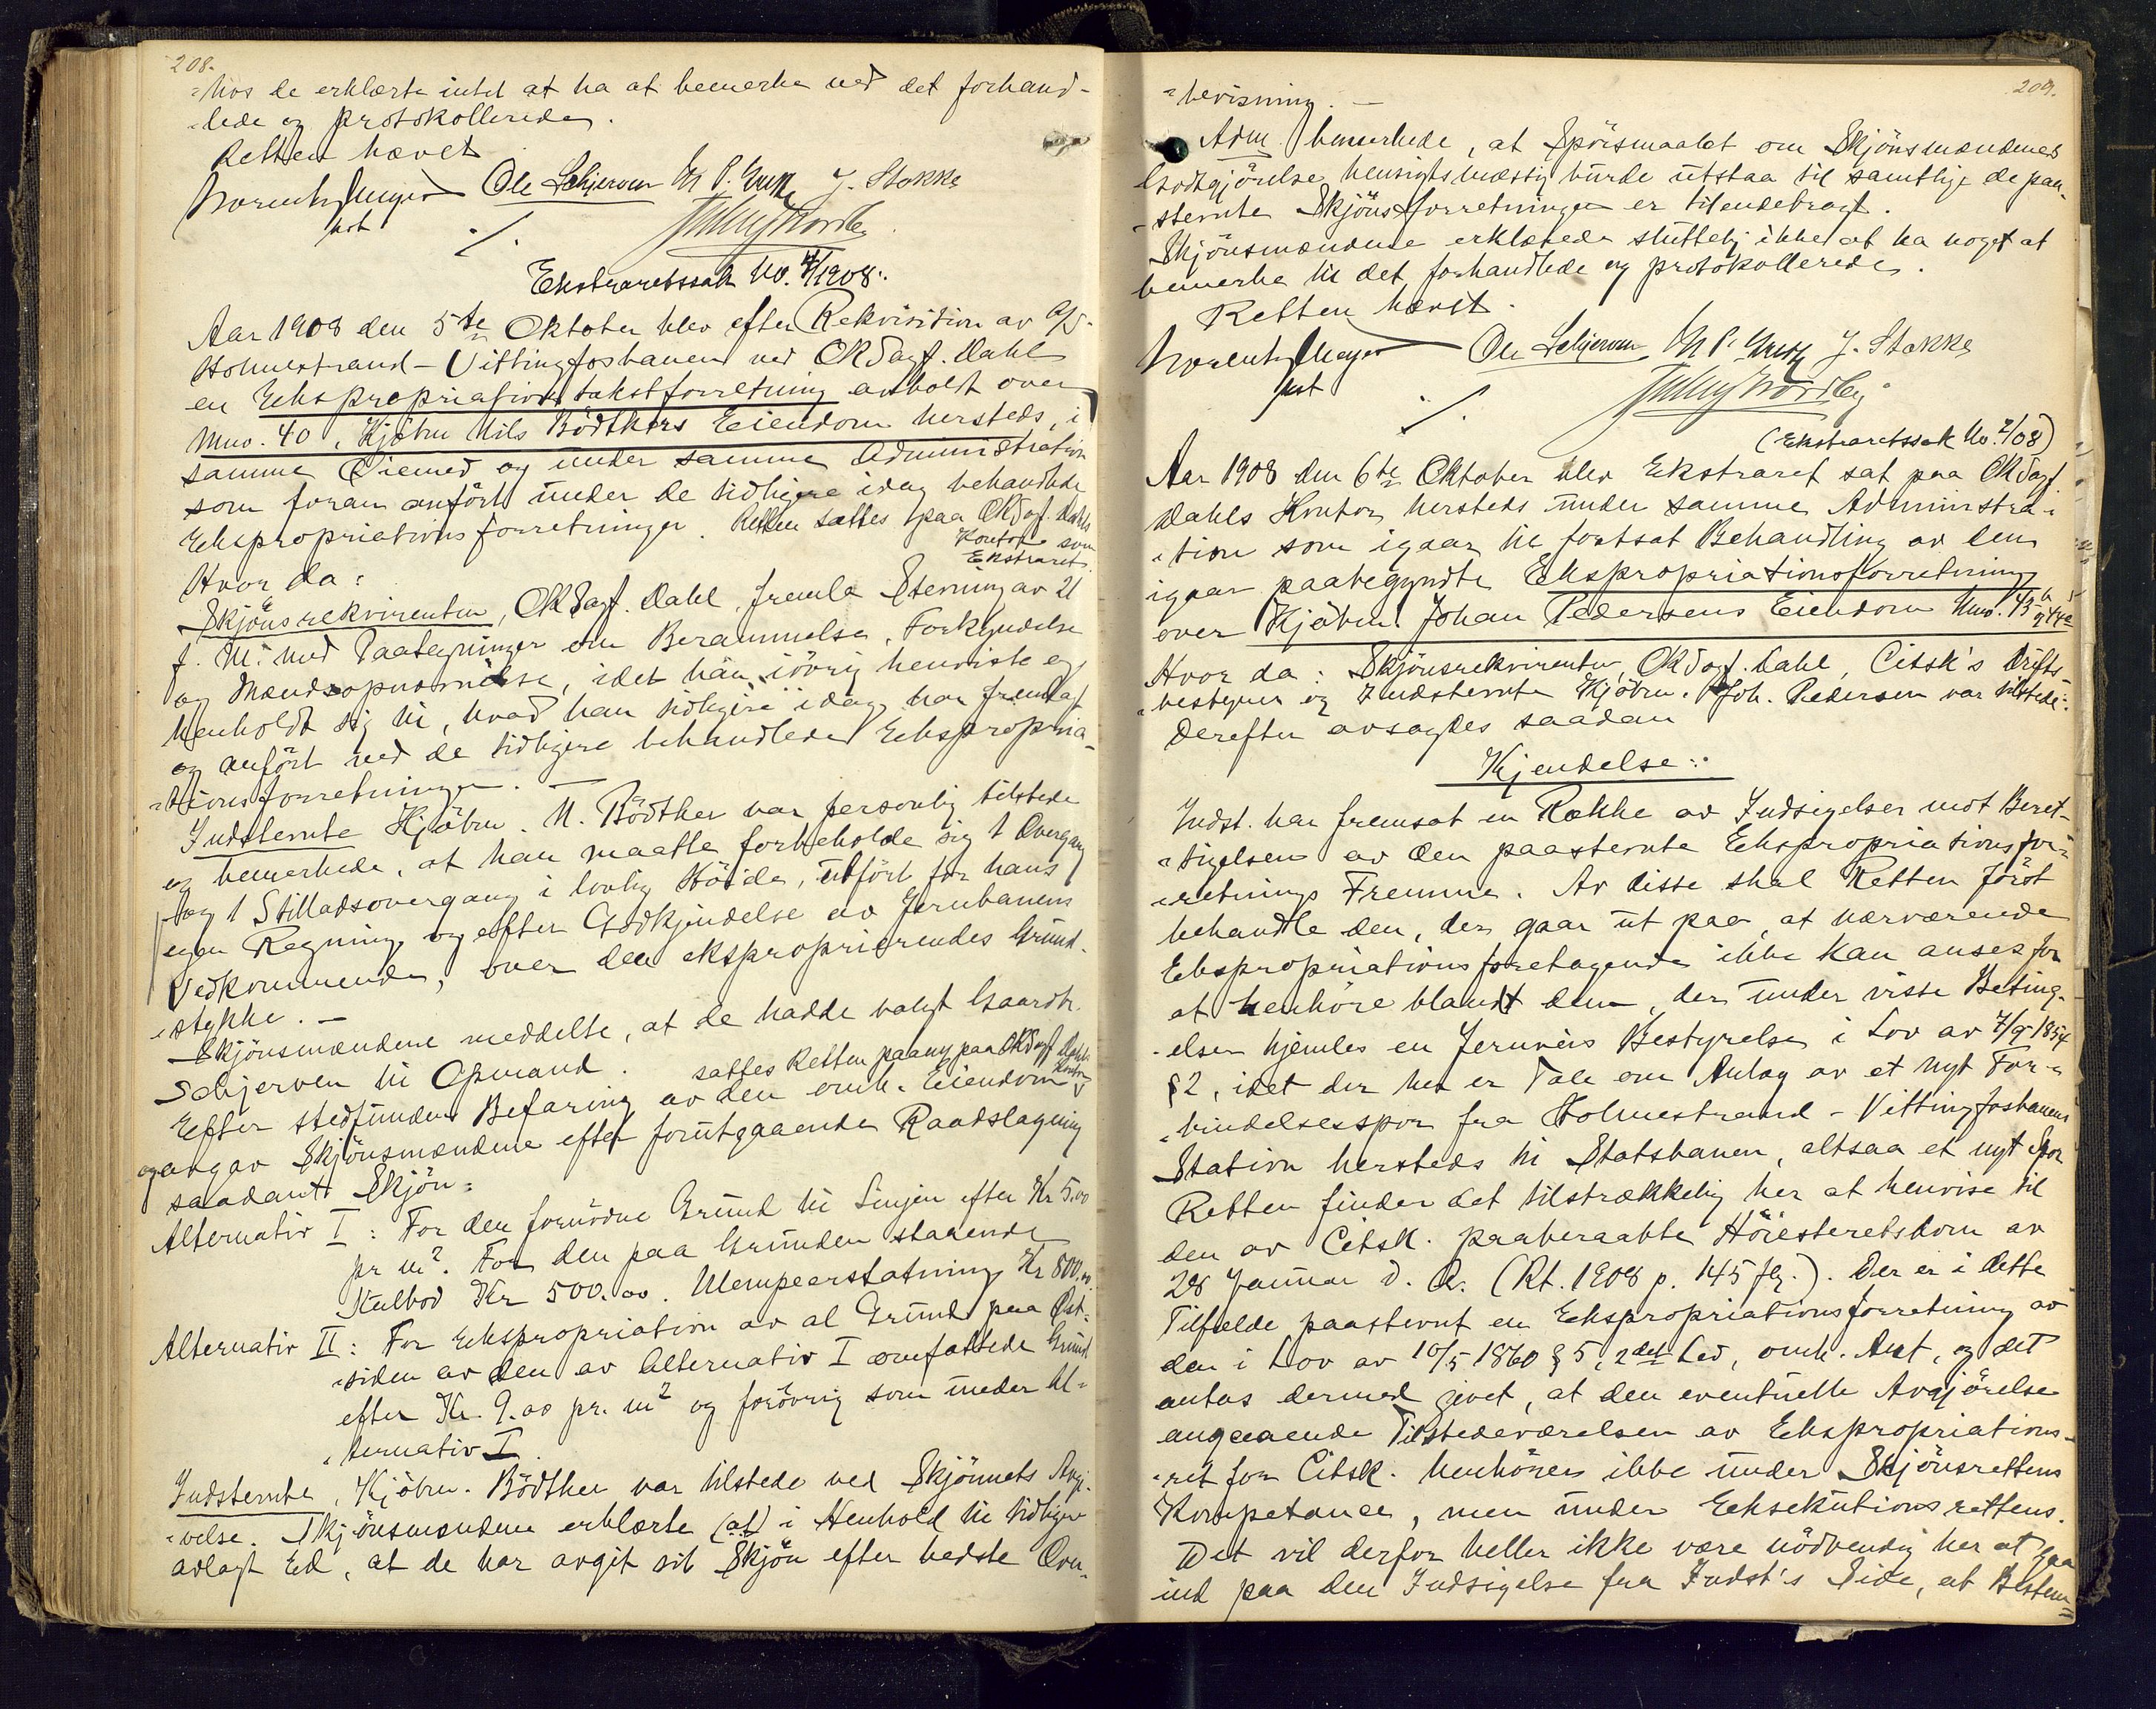 208.
"hos de erklærte intet at ha at bemerke ved det forhand-
"lede og protokollerede.
Retten hævet
Ole Schjerven J. Stokke
kst
./.
Ekstraretssak No. 4/1908.
Aar 1908 den 5te Oktober blev efter Rekvisition av A/S
Holmestrand-Vittingfosbanen ved ORSagf. Dahl
en Ekspropriationstakstforretning avholdt over
Mno. 40, Kjøbm Nils Bödtkers Eiendom hersteds, i
samme Øiemed og under samme Administration
som foran anfört under de tidligere idag behandlede
Ekspropriationsforretninger. Retten sattes paa ORSagf. Dahls
Kontor som
Ekstraret.
Hvor da:
Skjönsrekvirenten, ORSagf. Dahl, fremla Stevning av 21
f. M. med Paategninger om Berammelse, Forkyndelse
og Mændsopnævnelse, idet han iövrig henviste og
henholdt sig til, hvad han tidligere idag har fremlagt
og anfört ved de tidligere behandlede Ekspropria-
"tionsforretninger. —
Indstevnte Kjøbm. N. Bödtker var personlig tilstede
og bemerkede, at han maatte forbeholde sig 1 Overgang
og 1 Stilladsovergang i lovlig Höide, utfört for hans
egen Regning og efter Godkjendelse av Jernbanens
Vedkommende, over det eksproprierendes Grund-
"stykke. —
Skjönsmændene meddelte, at de hadde valgt Gaardbr.
Schjerven til Opmand.
sattes Retten paany paa ORSagf Dahls
Kontor
Efter stedfunden Befaring av den omh. Eiendom
og avgav Skjönsmændene efter forutgaaende Raadslagning
saadant Skjön:
Alternativ I: For den fornödne Grund til Linjen efter Kr 5.00
pr m². For den paa Grunden staaende
Kulbod Kr 500.00. Ulempeerstatning Kr 800.00
Alternativ II: For Ekspropriation av al Grund paa Öst-
"siden av den av Alternativ I omfattede Grund
efter Kr. 9.00 pr. m² og forövrig som under Al-
"ternativ I.
Indstevnte, Kjöbm. Bödtker var tilstede ved Skjönnets Avgi-
"velse. Skjönsmændene erklærte (at) i Henhold til tidligere
avlagt Ed, at de har avgit sit Skjön efter bedste Over-
209.
"bevisning. —
Adm. bemerkede, at Spörsmaalet om Skjönsmændenes
Godtgjörelse hensigtsmæssig burde utstaa til samtlige de paa-
"stevnte Skjönsforretninger er tilendebragt.
Skjönsmændene erklærede sluttelig ikke at ha noget at
bemerke til det forhandlede og protokollerede.
Retten hævet.
Ole Schjerven J. Stokke
kst
./.
(Ekstraretssak No. 2/08)
Aar 1908 den 6te Oktober blev Ekstraret sat paa ORSagf.
Dahls Kontor hersteds under samme Administra-
"tion som igaar til fortsat Behandling av den
igaar paabegyndte Ekspropriationsforretning
over Kjöbm. Johan Pedersens Eiendom Mno. 43
Hvor da: Skjönsrekvirenten, ORSagf. Dahl, Citsk's Drifts-
"bestyrer og Indstevnte Kjöbm. Joh. Pedersen var tilstede:
Derefter avsagdes saadan
Kjendelse:
Indst. har fremsat en Række av Indsigelser mot Beret-
"tigelsen av den paastevnte Ekspropriationsfor-
"retnings Fremme. Av disse skal Retten först
behandle den, der gaar ut paa, at nærværende
Ekspropriationsforetagende ikke kan ansees for
at henhöre blandt dem, der under visse Beting-
"elser hjemles en Jernveis Bestyrelse i Lov av 7/9 1854
§ 2, idet der her er Tale om Anlag av et nyt For-
"bindelsesspor fra Holmestrand-Vittingfosbanens
Station hersteds til Statsbanen, altsaa et nyt Spor
Retten finder det tilstrækkelig her at henvise til
den av Citsk. paaberaabte Höiesteretsdom av
28 Januar d. A. (Rt. 1908 p. 145 flg.). Der er i dette
Tilfælde paastevnt en Ekspropriationsforretning av
den i Lov av 10/5 1860 § 5, 2det Led, omh. Art, og det
antas dermed givet, at den eventuelle Avgjörelse
angaaende Tilstedeværelsen av Ekspropriations-
"ret for Citsk. henhörer ikke under Skjönsrettens
Kompetance, men under Eksekutionsrettens.
Det vil derfor heller ikke være nödvendig her at gaa
ind paa den Indsigelse fra Indst's Side, at Bestem-